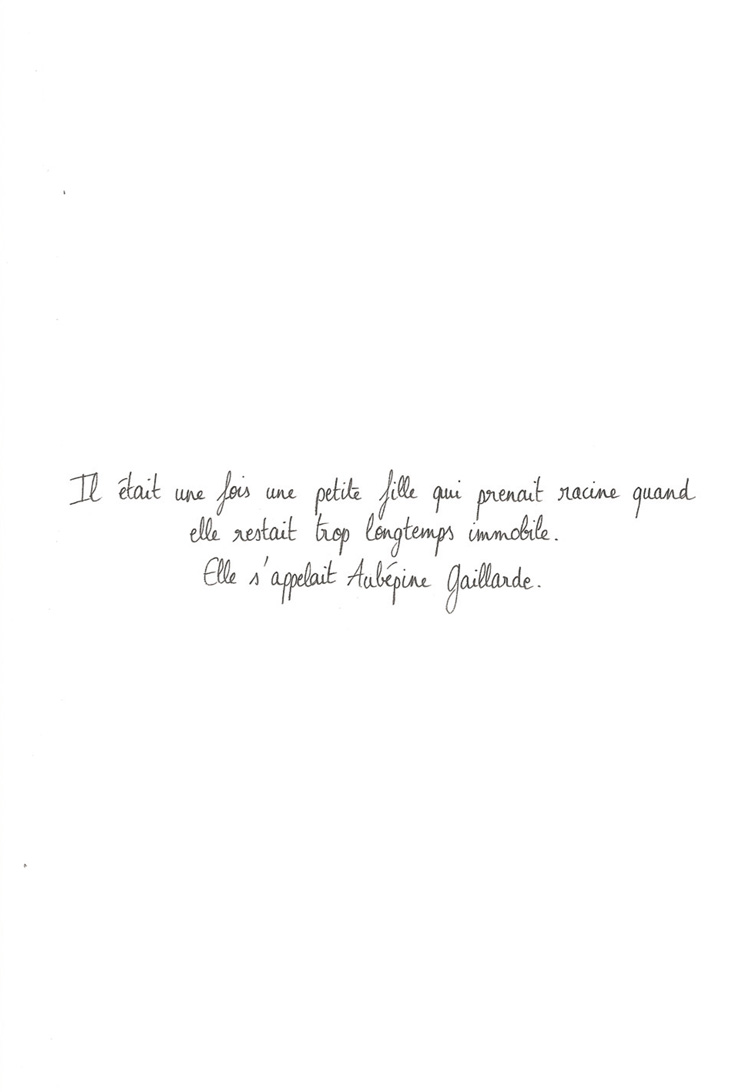 Il était une fois une petite fille qui prenait racine quand
elle restait trop longtemps immobile.
Elle s'appelait Aubépine Gaillarde.